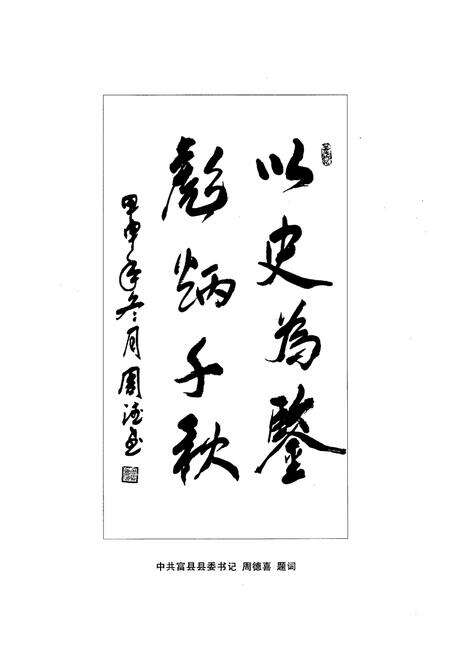 以史为鉴
彪炳千秋
甲申年冬月周德喜
中共富县县委书记 周德喜 题词